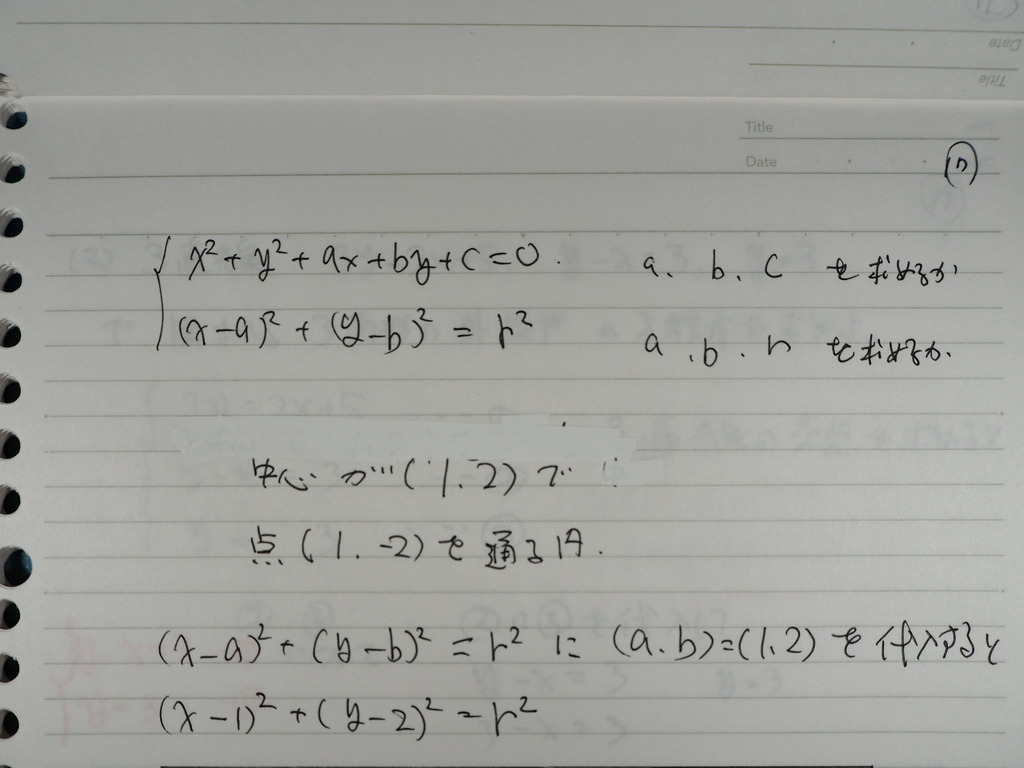 Date
Title
Title
Date
(1)
x²+y²+ax+by+c=0. a、b、c を求めるか
(x-a)²+(y-b)²=r² a、b、r を求めるか.
中心が(1.2)で
点(1.-2)を通る円.
(x-a)²+(y-b)²=r² に (a.b)=(1.2)を代入すると
(x-1)²+(y-2)²=r²